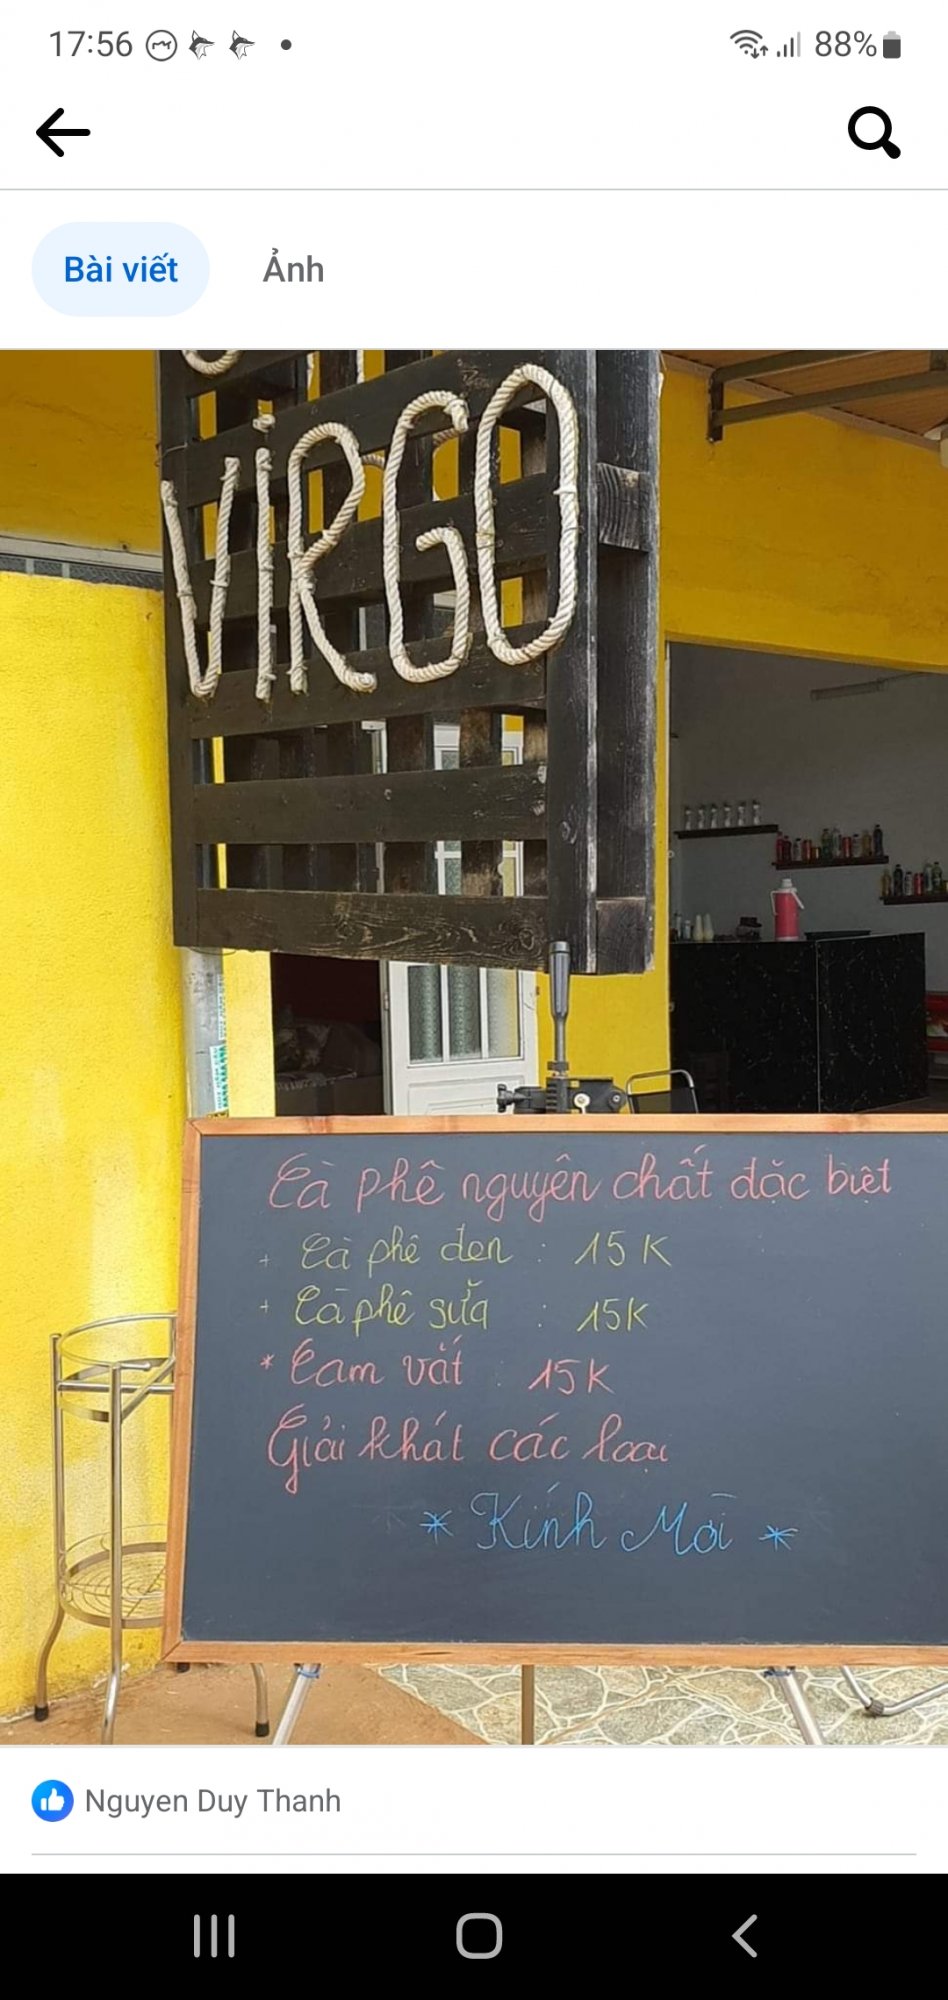 17:56
88%
Bài viết
Ảnh
ViRGO
Cà phê nguyên chất đặc biệt
+ Cà phê đen : 15K
+ Cà phê sữa : 15K
* Cam vắt : 15K
Giải khát các loại
* Kính Mời *
Nguyen Duy Thanh